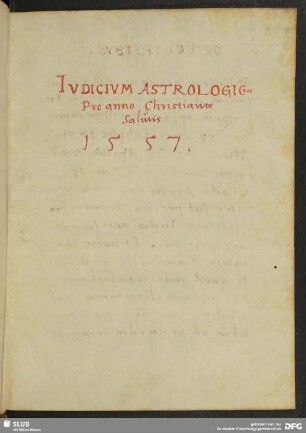 IVDICIVM ASTROLOGIC
Pro anno Christianæ
Salutis
1 5 5 7 .
SLUB
Wir führen Wissen.
gefördert von der
Deutschen Forschungsgemeinschaft
DFG